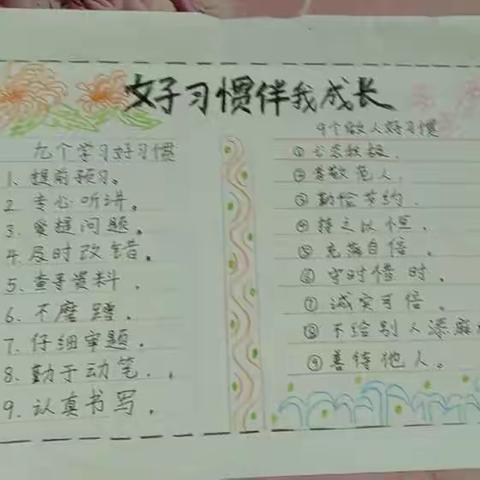 好子习惯伴我成长
九个学习好习惯
1. 提前预习。
2. 专心听讲。
3. 爱提问题。
4. 及时改错。
5. 查寻资料。
6. 不磨蹭。
7. 仔细审题。
8. 勤于动笔.
9. 认真书写。
9个做人好习惯
① 心态积极.
② 尊敬老人.
③ 勤俭节约.
④ 持之以恒.
⑤ 充满自信.
⑥ 守时惜时.
⑦ 诚实可信.
⑧ 不给别人添麻
⑨ 善待他人。